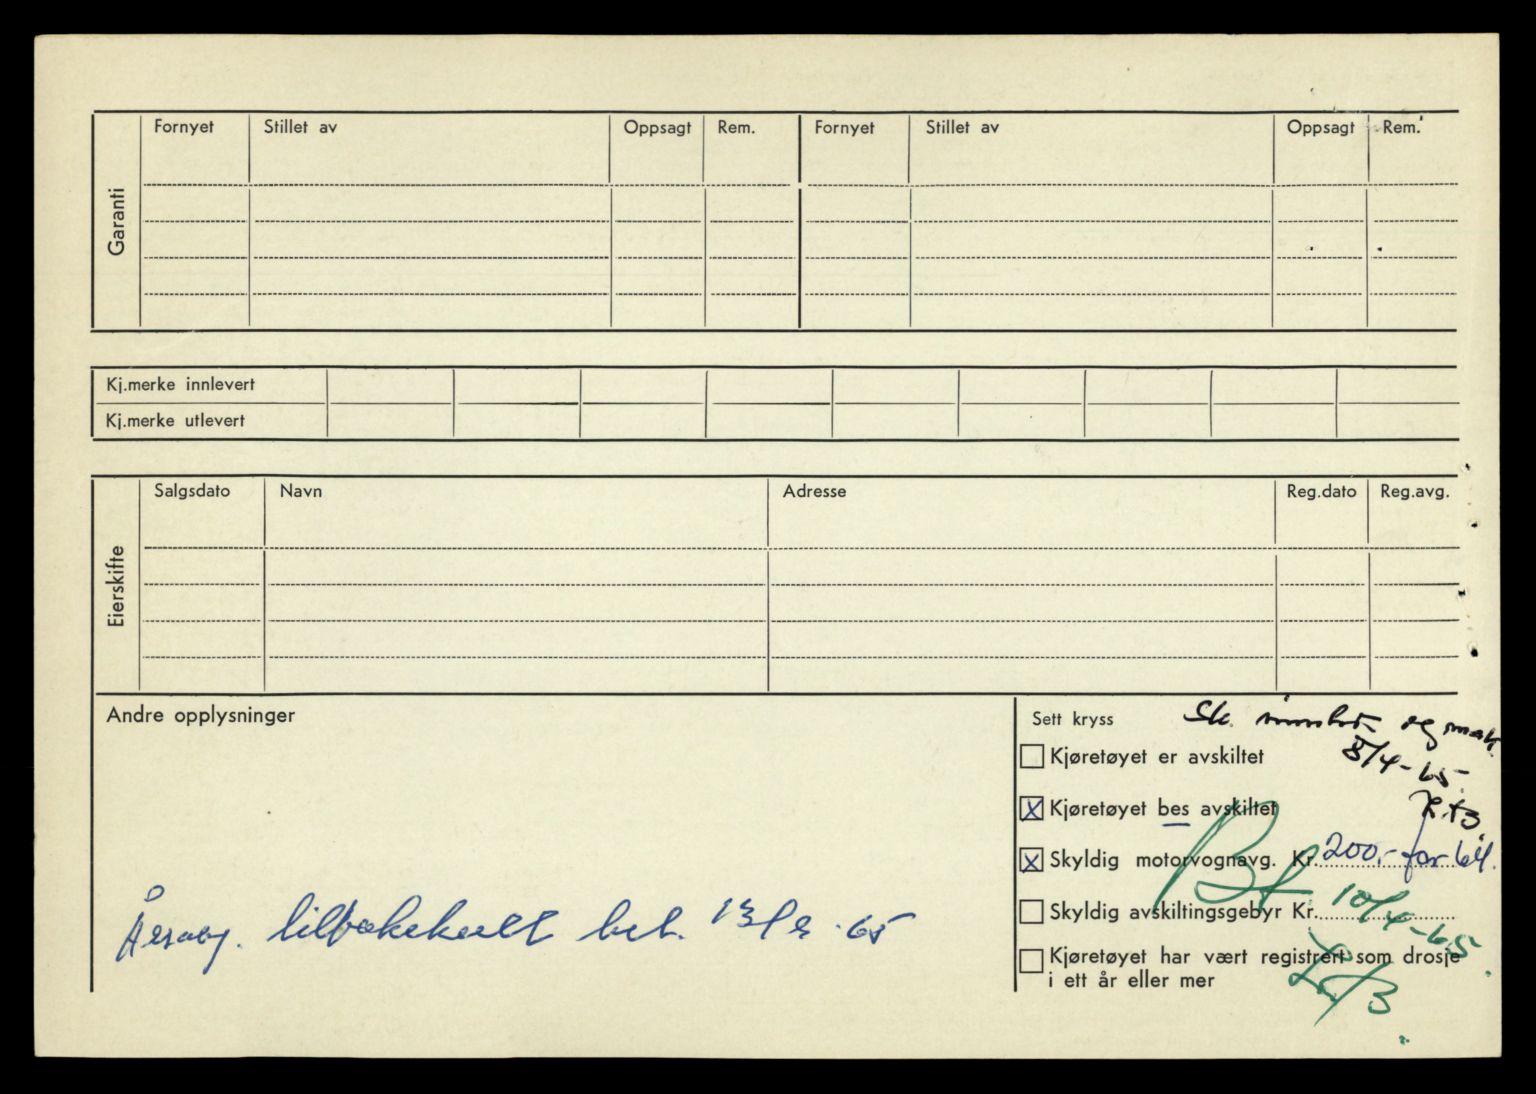 Garanti
Fornyet Stillet av Oppsagt Rem. Fornyet Stillet av Oppsagt Rem.
Kj.merke innlevert
Kj.merke utlevert
Eierskifte
Salgsdato Navn Adresse Reg.dato Reg.avg.
Andre opplysninger
bet.
Sett kryss
8/4-65
Kjøretøyet er avskiltet
X Kjøretøyet bes avskiltet
X Skyldig motorvognavg. Kr. 200,- for 64.
Skyldig avskiltingsgebyr Kr. 10/4-65
Kjøretøyet har vært registrert som drosje
i ett år eller mer